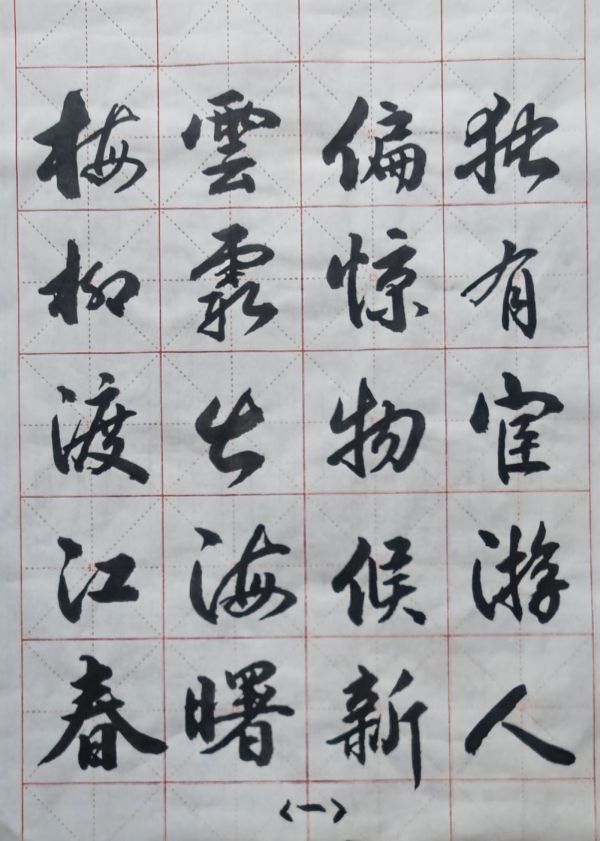 独有宦游人
偏惊物候新
雲霞出海曙
梅柳渡江春
<一>